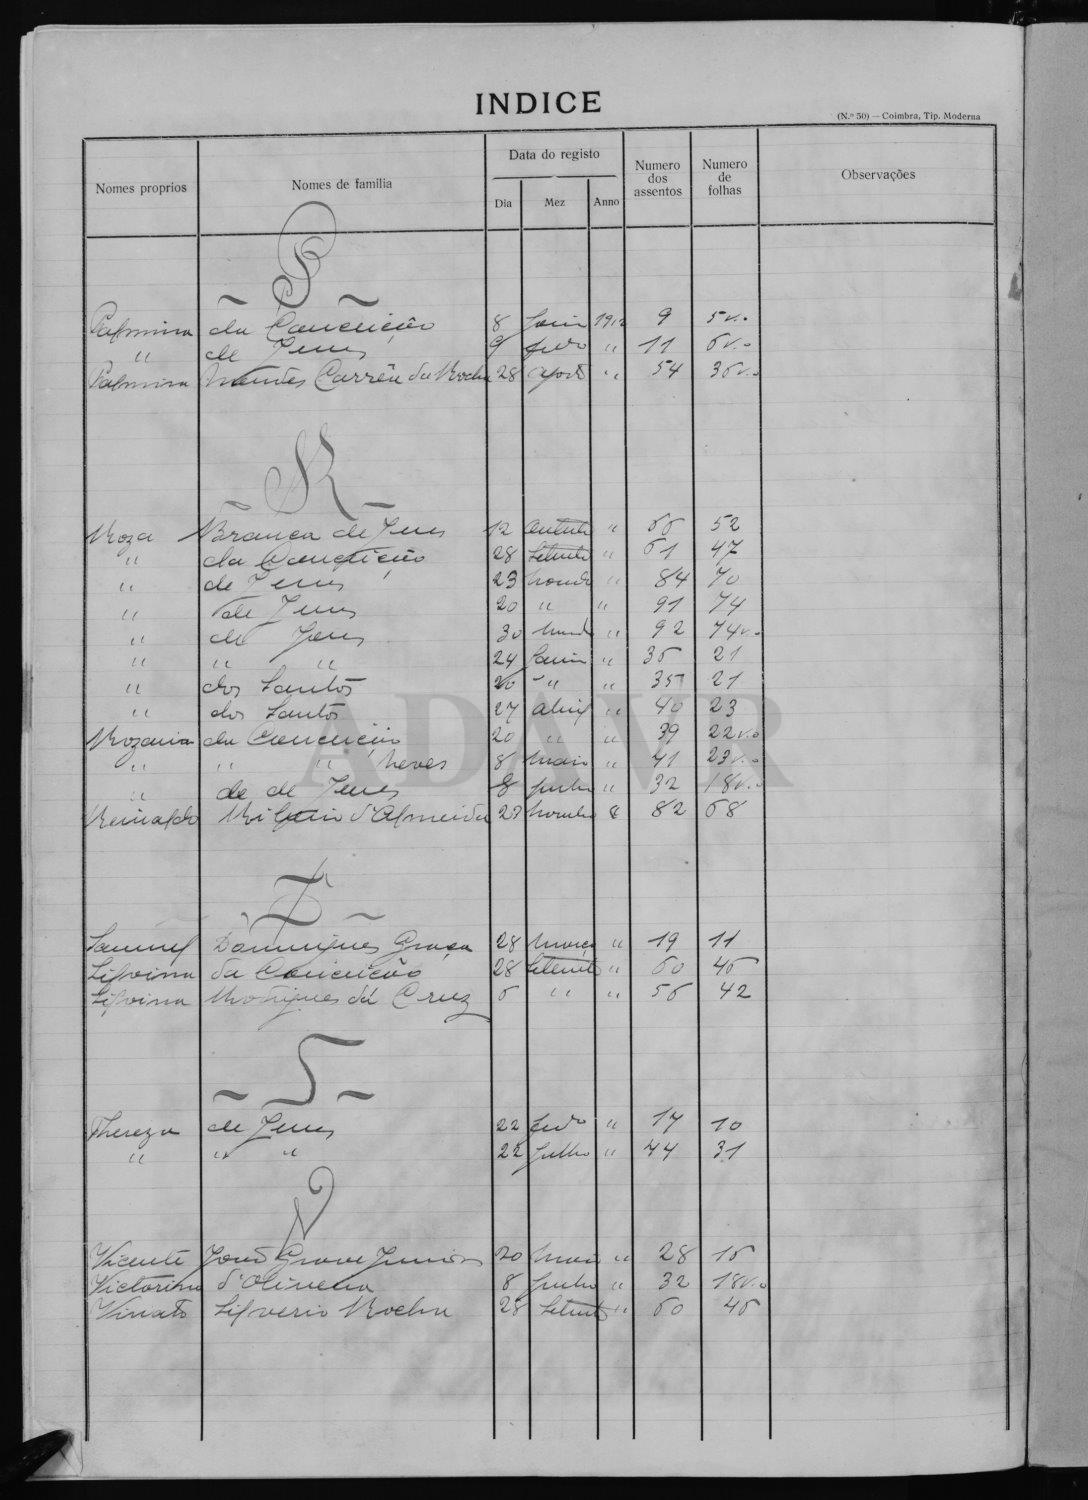 INDICE
(N.º 50) — Coimbra, Tip. Moderna
Nomes proprios Nomes de familia Data do registo Dia Mez Anno Numero dos assentos Numero de folhas Observações
~ P ~
Palmira da Conceição 8 Janº 1912 9 5 v.o
" de Jesus 9 fevro " 11 6 v.o
Palmira Mendes Corrêa da Rocha 28 Agosto " 54 36 v.o
~ R ~
Roza Branca de Jesus 12 Outubº " 66 52
" da Conceição 28 Setembº " 61 47
" de Jesus 23 Novembº " 84 70
" de Jesus 20 " " 91 74
" de Jesus 30 " 92 74 v.o
" " " 24 " 36 21
" dos Santos 20 " " 35 21
" dos Santos 27 Abril " 40 23
Rozaria da Conceição 20 " " 39 22 v.o
" " " Neves 8 Maio " 41 23 v.o
" de de Jesus 8 Junho " 32 18 v.o
Reinaldo d'Almeida 27 Novembº 82 68
Samuel Domingues Graça 28 Março " 19 11
Silvina da Conceição 28 Setembº " 60 46
Silvina Rodrigues da Cruz 6 " " 56 42
Thereza de Jesus 22 fevro " 17 10
" " " 22 Julho " 44 31
~ V ~
Vicente José Grave Junior 20 Maio " 28 16
Victorino d'Oliveira 8 Junho " 32 18 v.o
Viriato Silverio Rocha 28 Setembº " 60 46
ADAVR